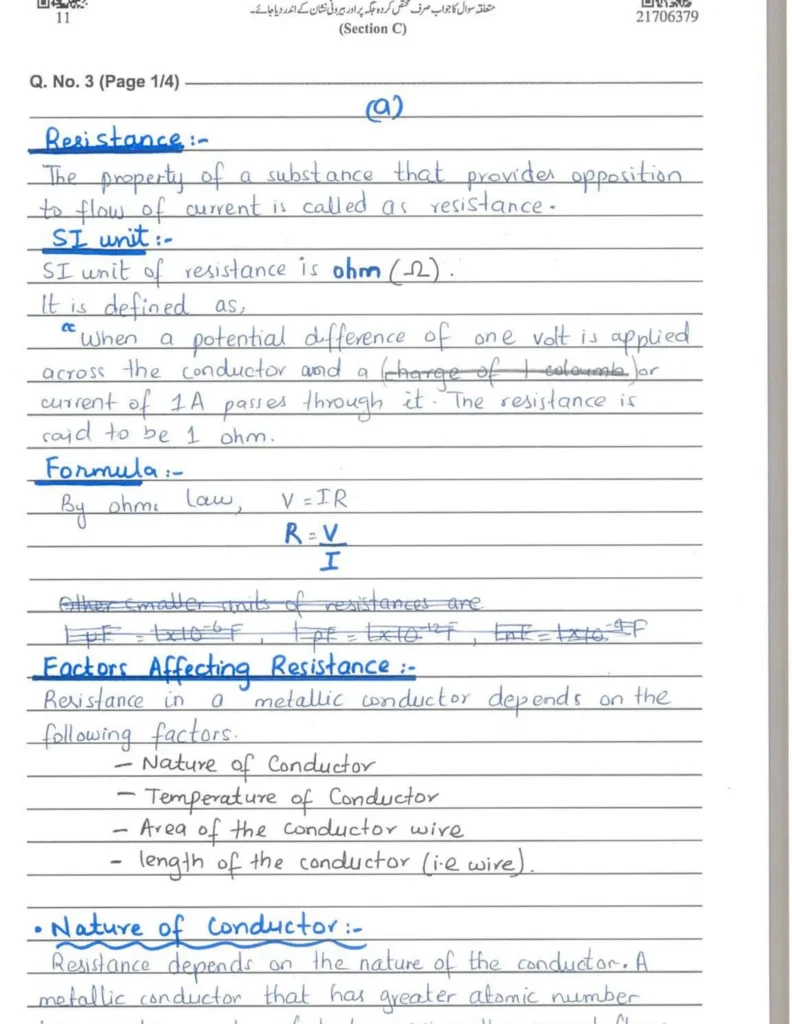 11
متعلقہ سوال کا جواب صرف مختص کردہ جگہ پر اور بیرونی نشان کے اندر دیا جائے۔
21706379
(Section C)
Q. No. 3 (Page 1/4)
(a)
Resistance:-
The property of a substance that provides opposition
to flow of current is called as resistance.
SI unit:-
SI unit of resistance is ohm (Ω).
It is defined as,
"When a potential difference of one volt is applied
across the conductor and a (charge of 1 coloumb) or
current of 1A passes through it. The resistance is
said to be 1 ohm.
Formula:-
By ohms law, V = IR
R = V/I
Other smaller units of resistances are
1μF = 1x10⁻⁶F, 1pF = 1x10⁻¹²F, 1nF = 1x10⁻⁹F
Factors Affecting Resistance:-
Resistance in a metallic conductor depends on the
following factors.
– Nature of Conductor
– Temperature of Conductor
– Area of the conductor wire
– length of the conductor (i.e wire).
• Nature of Conductor:-
Resistance depends on the nature of the conductor. A
metallic conductor that has greater atomic number